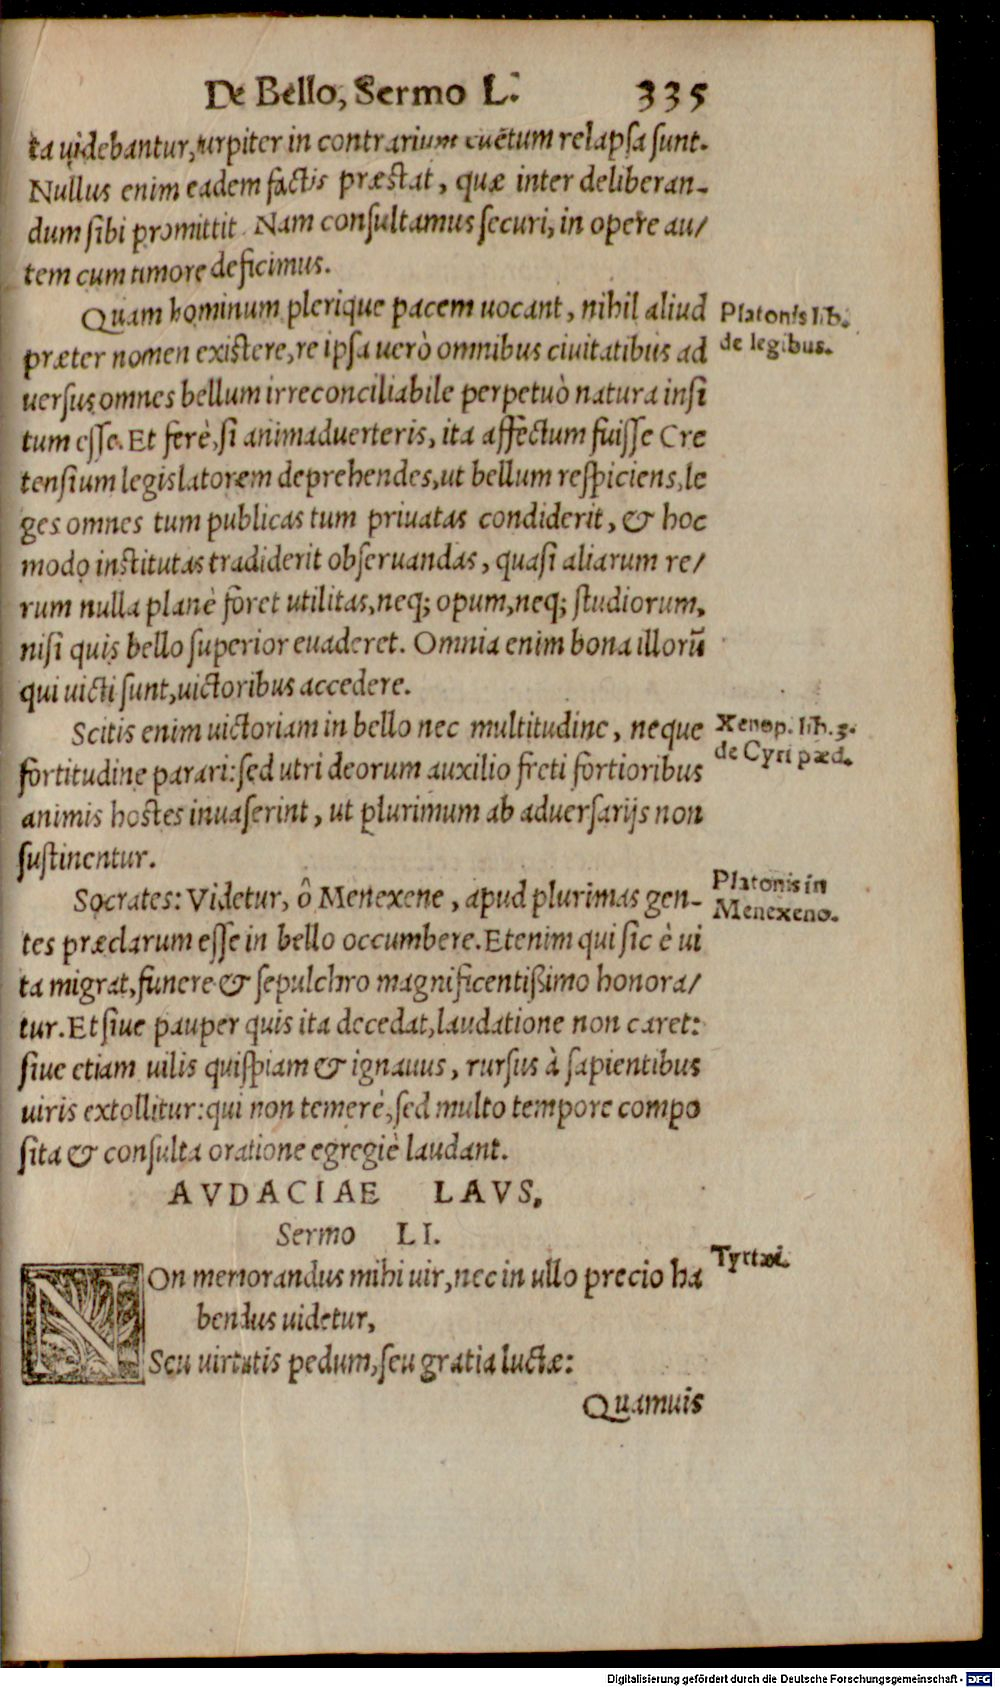 De Bello, Sermo L. 335
ta uidebantur, turpiter in contrarium euẽtum relapsa sunt.
Nullus enim eadem factis præstat, quæ inter deliberan-
dum sibi promittit. Nam consultamus securi, in opere au/
tem cum timore deficimus.
Quam hominum plerique pacem uocant, nihil aliud
Platonis lib.
præter nomen existere, re ipsa uerò omnibus ciuitatibus ad
de legibus.
uersus omnes bellum irreconciliabile perpetuò natura insi
tum esse. Et ferè, si animaduerteris, ita affectum fuisse Cre
tensium legislatorem deprehendes, ut bellum respiciens, le
ges omnes tum publicas tum priuatas condiderit, & hoc
modo institutas tradiderit obseruandas, quasi aliarum re/
rum nulla planè foret utilitas, neq; opum, neq; studiorum,
nisi quis bello superior euaderet. Omnia enim bona illorũ
qui uicti sunt, uictoribus accedere.
Scitis enim uictoriam in bello nec multitudine, neque
Xenop. lib. 3.
fortitudine parari: sed utri deorum auxilio freti fortioribus
de Cyri pæd.
animis hostes inuaserint, ut plurimum ab aduersarijs non
sustinentur.
Socrates: Videtur, ô Menexene, apud plurimas gen-
Platonis in
tes præclarum esse in bello occumbere. Etenim qui sic è ui
Menexeno.
ta migrat, funere & sepulchro magnificentißimo honora/
tur. Et siue pauper quis ita decedat, laudatione non caret:
siue etiam uilis quispiam & ignauus, rursus à sapientibus
uiris extollitur: qui non temerè, sed multo tempore compo
sita & consulta oratione egregiè laudant.
AVDACIAE LAVS.
Sermo LI.
NOn memorandus mihi uir, nec in ullo precio ha
Tyrtæi.
bendus uidetur,
Seu uirtutis pedum, seu gratia luctæ:
Quamuis
Digitalisierung gefördert durch die Deutsche Forschungsgemeinschaft - DFG